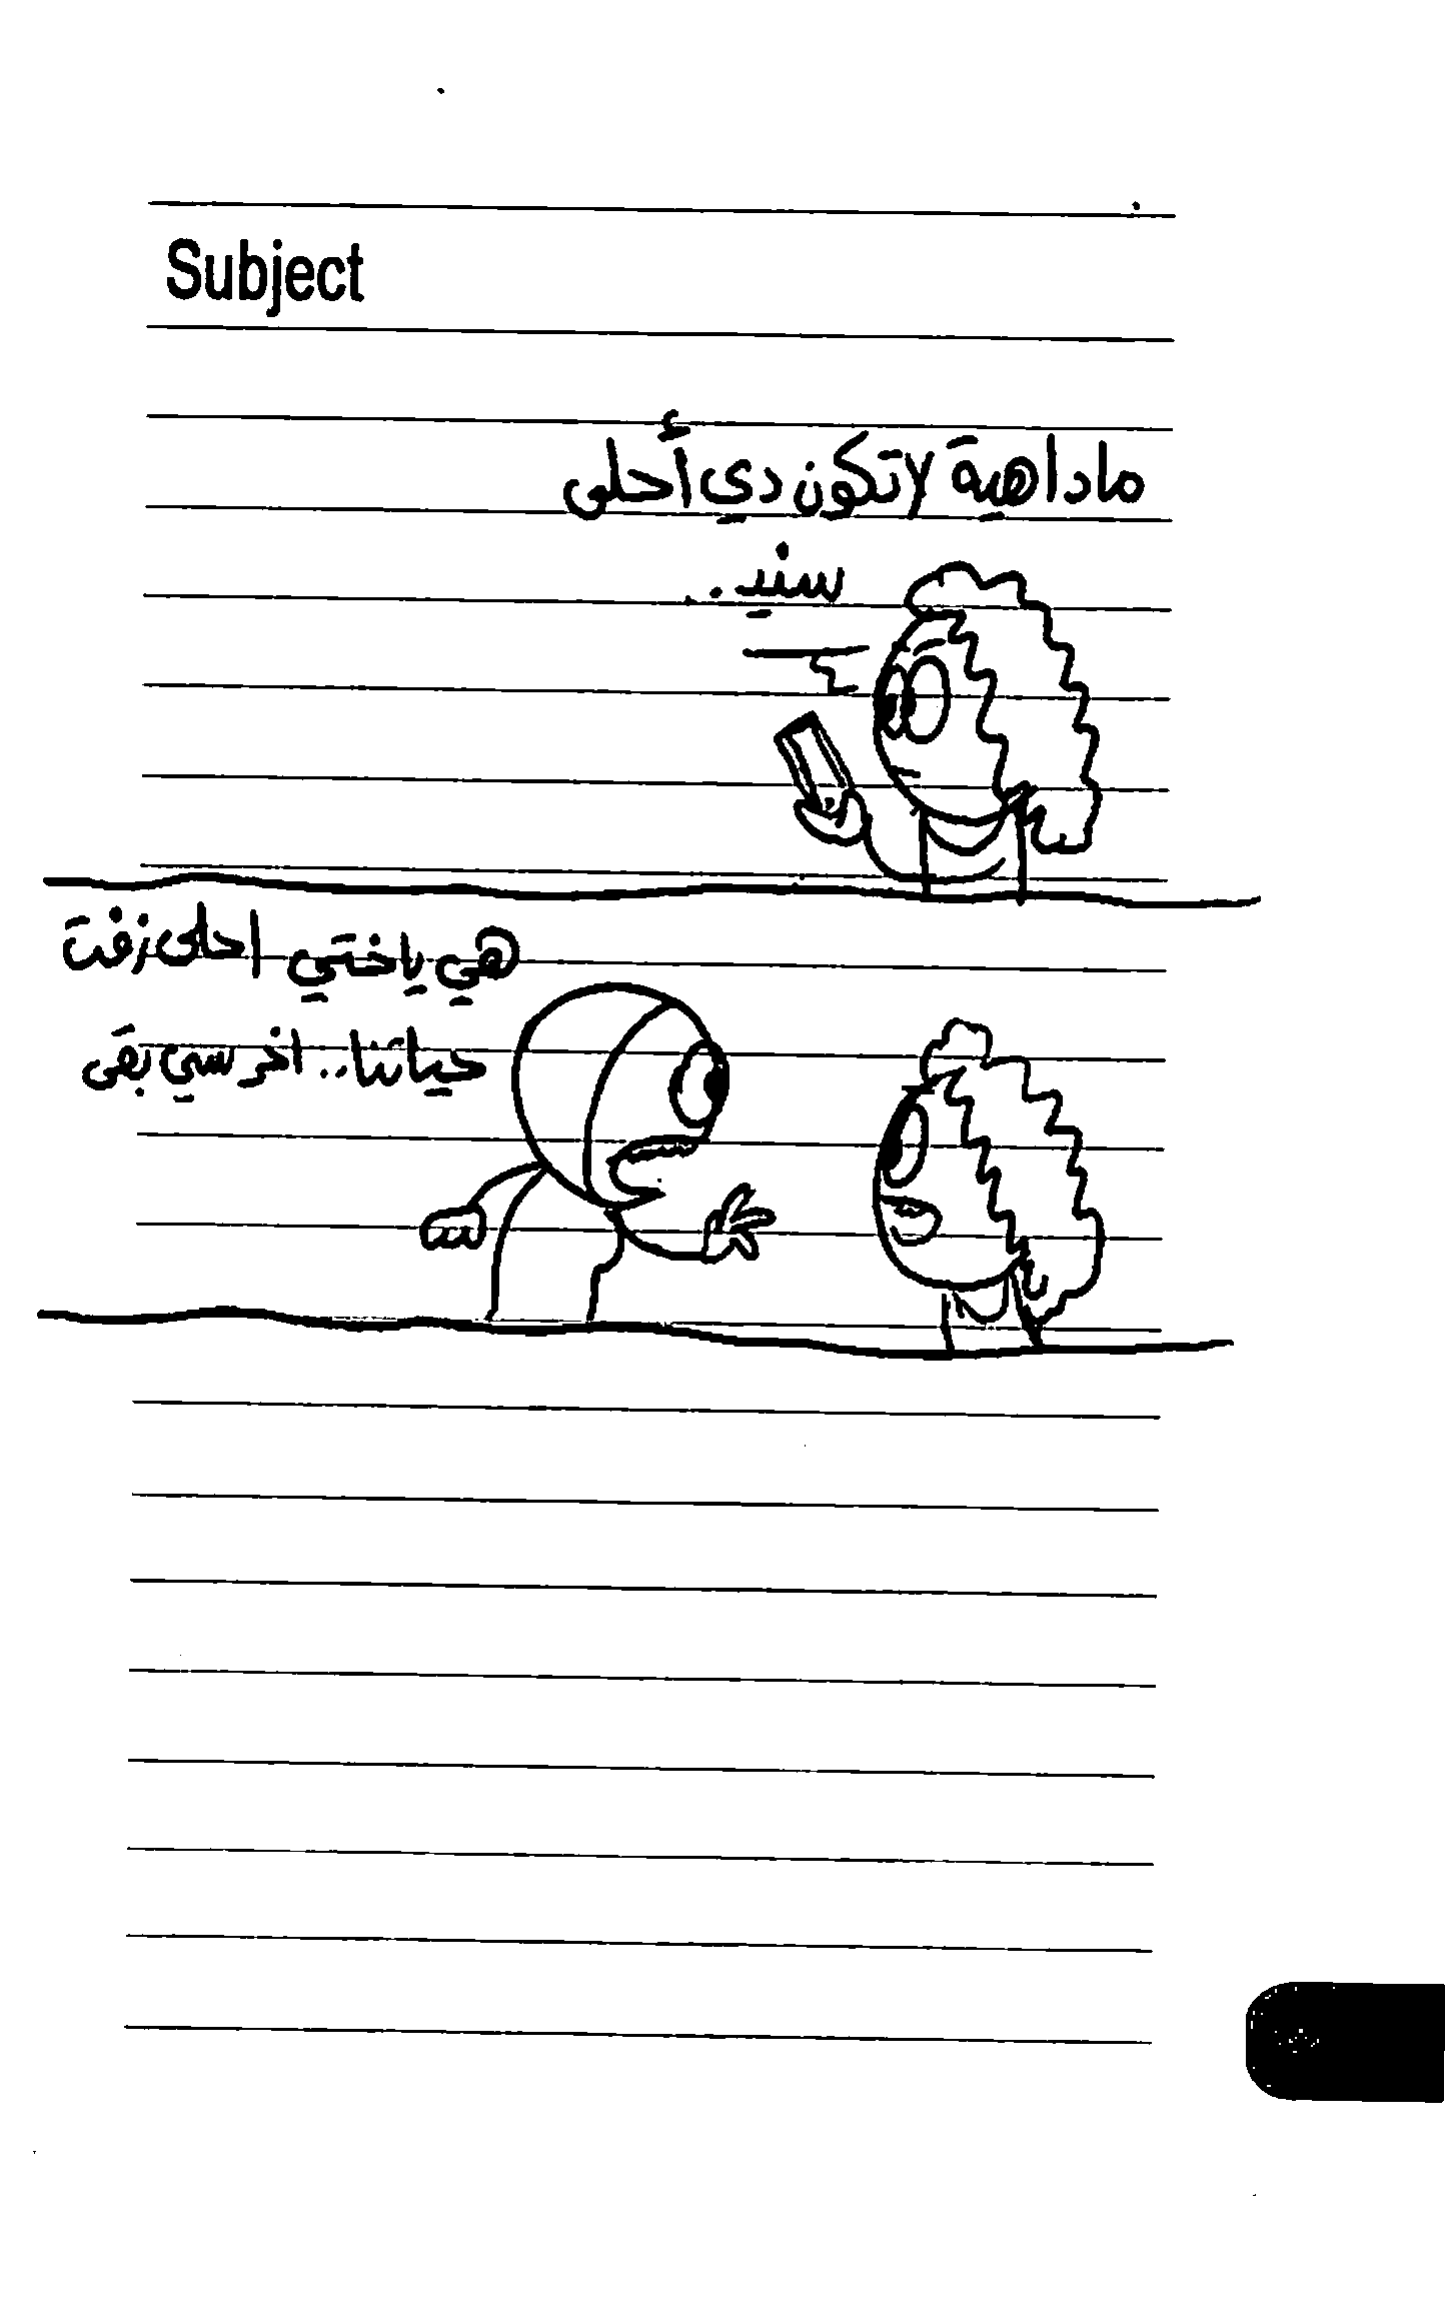 Subject
ماداهية لا تكون دي أحلى
سنيد..
هي ياختي احلى زفت
حياتنا.. اخرسي بقى